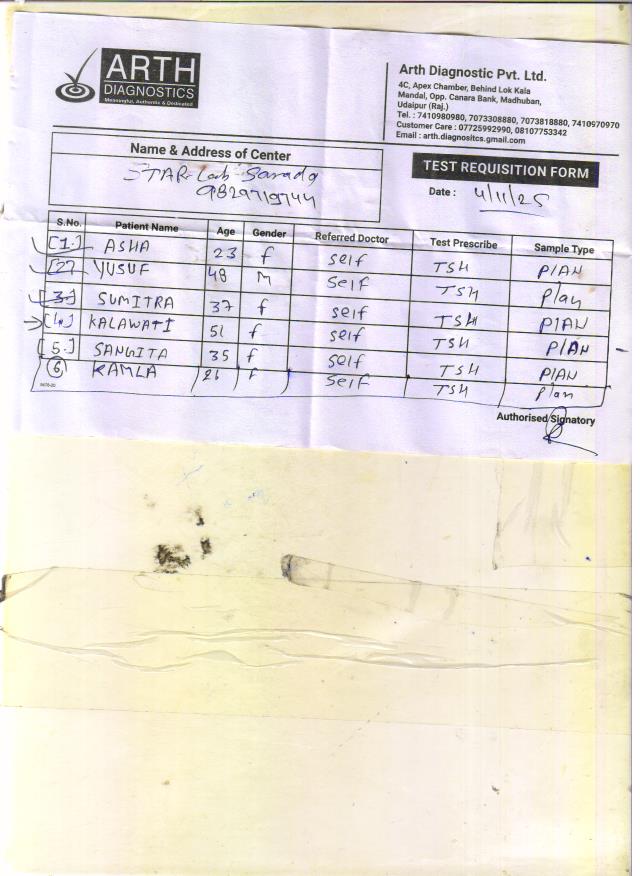 ARTH
DIAGNOSTICS
Meaningful, Authentic & Dedicated
Arth Diagnostic Pvt. Ltd.
4C, Apex Chamber, Behind Lok Kala
Mandal, Opp. Canara Bank, Madhuban,
Udaipur (Raj.)
Tel. : 7410980980, 7073308880, 7073818880, 7410970970
Customer Care : 07725992990, 08107753342
Email : arth.diagnositcs.gmail.com
Name & Address of Center
STAR Lab Sarada
9829719744
TEST REQUISITION FORM
Date : 4/11/25
S.No. Patient Name Age Gender Referred Doctor Test Prescribe Sample Type
[1.] ASHA 23 f self TSH PlAN
[2] YUSUF 48 M Self TSH Plan
[3] SUMITRA 37 f self TSH PlAN
[4.] KALAWATI 51 f self TSH PlAN
[5.] SANGITA 35 f self TSH PlAN
(6) KAMLA 26 F Self TSH Plan
Authorised Signatory